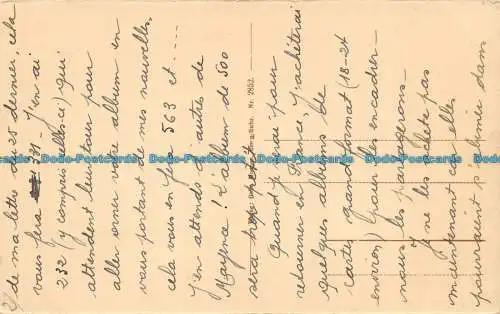 2/ de ma lettre du 25 dernier, cela
vous fera 331 - J'en ai
232 (y compris celles-ci) qui
attendent leur tour pour
aller orner votre album en
vous portant de mes nouvelles,
cela vous en fera 563 et ....
j'en attends d'autres de
Mayence! L'album de 500
sera trop petit
Quand je vais pour
retourner en France, j'achèterai
quelques albums de
cartes grand format (18-24
environ) pour les encadrer -
nous les partagerons -
Je ne les achète pas
maintenant car elles
pourraient s'abîmer dans
Nr. 2852.
Dodo-Postcards Dodo-Postcards Dodo-Postcards Dodo-Postcards Dodo-Postcards
Dodo-Postcards Dodo-Postcards Dodo-Postcards Dodo-Postcards Dodo-Postcards